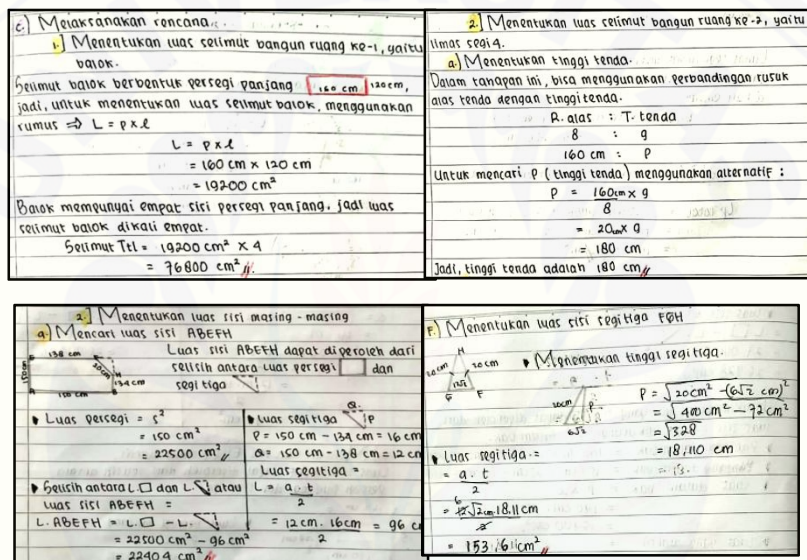 c.) Melaksanakan rencana.
1.) Menentukan luas selimut bangun ruang ke-1, yaitu
balok.
Selimut balok berbentuk persegi panjang 160 cm 120cm,
jadi, untuk menentukan luas selimut balok, menggunakan
rumus ⇒ L = p x l
L = p x l
= 160 cm x 120 cm
= 19200 cm²
Balok mempunyai empat sisi persegi panjang, jadi luas
selimut balok dikali empat.
Selimut Ttl = 19200 cm² x 4
= 76800 cm²
2.) Menentukan luas selimut bangun ruang ke-2, yaitu
limas segi 4.
a.) Menentukan tinggi tenda.
Dalam tahapan ini, bisa menggunakan perbandingan rusuk
alas tenda dengan tinggi tenda.
R. alas : T. tenda
8 : 9
160 cm : P
Untuk mencari P (tinggi tenda) menggunakan alternatif :
P = 160cm x 9
8
= 20cm x 9
= 180 cm
Jadi, tinggi tenda adalah 180 cm
2.) Menentukan luas sisi masing-masing
a.) Mencari luas sisi ABEFH
138 cm
20cm
134cm
150cm
150 cm
Luas sisi ABEFH dapat diperoleh dari
selisih antara luas persegi dan
segi tiga
Luas persegi = s²
= 150 cm²
= 22500 cm²
Selisih antara L. dan L. atau
luas sisi ABEFH =
L. ABEFH = L. - L.
= 22500 cm² - 96 cm²
= 22404 cm²
Luas segitiga
Q
P
P = 150 cm - 134 cm = 16 cm
Q = 150 cm - 138 cm = 12 cm
Luas segitiga =
L = a . t
2
= 12 cm . 16cm = 96 c
2
F.) Menentukan luas sisi segitiga FGH
H
20cm 20cm
12√2
G F
Menentukan tinggi segitiga.
20cm
P
6√2
P = √20cm² - (6√2 cm)²
= √400 cm² - 72 cm²
= √328
= 18,110 cm
Luas segitiga =
= a . t
2
6
= 12√2cm . 18.11 cm
2
= 153,161 cm²